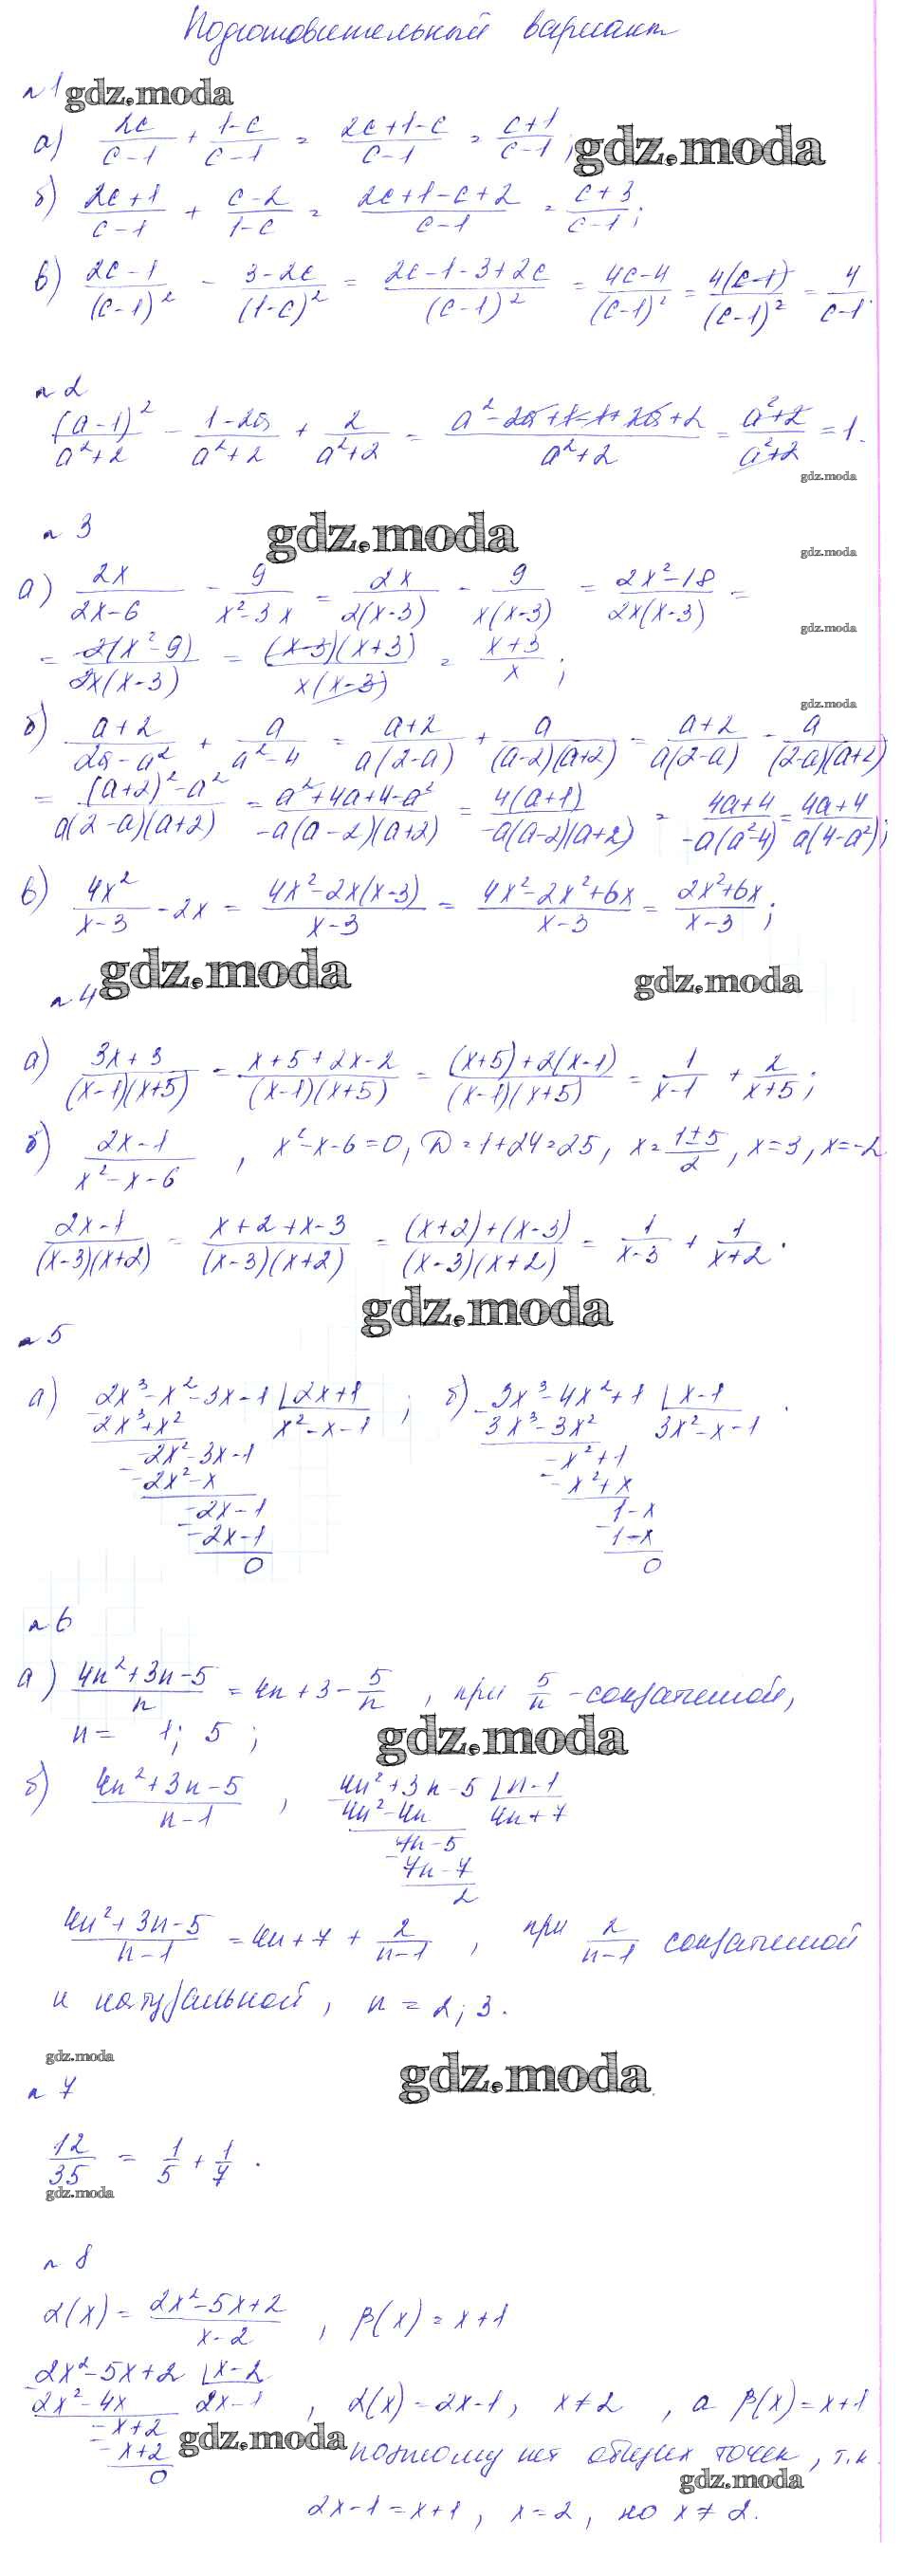 Подготовительный вариант
№1 gdz.moda
а) 2c/(c-1) + (1-c)/(c-1) = (2c+1-c)/(c-1) = (c+1)/(c-1); gdz.moda
б) (2c+1)/(c-1) + (c-2)/(1-c) = (2c+1-c+2)/(c-1) = (c+3)/(c-1);
в) (2c-1)/(c-1)² - (3-2c)/(1-c)² = (2c-1-3+2c)/(c-1)² = (4c-4)/(c-1)² = 4(c-1)/(c-1)² = 4/(c-1).
№2
(a-1)²/(a²+2) - (1-2a)/(a²+2) + 2/(a²+2) = (a²-2a+1-1+2a+2)/(a²+2) = (a²+2)/(a²+2) = 1.
gdz.moda
№3 gdz.moda
gdz.moda
а) 2x/(2x-6) - 9/(x²-3x) = 2x/(2(x-3)) - 9/(x(x-3)) = (2x²-18)/(2x(x-3)) =
gdz.moda
= 2(x²-9)/(2x(x-3)) = (x-3)(x+3)/(x(x-3)) = (x+3)/x;
gdz.moda
б) (a+2)/(2a-a²) + a/(a²-4) = (a+2)/(a(2-a)) + a/((a-2)(a+2)) = (a+2)/(a(2-a)) - a/((2-a)(a+2))
= ((a+2)²-a²)/(a(2-a)(a+2)) = (a²+4a+4-a²)/(-a(a-2)(a+2)) = 4(a+1)/(-a(a-2)(a+2)) = (4a+4)/(-a(a²-4)) = (4a+4)/(a(4-a²));
в) 4x²/(x-3) - 2x = (4x²-2x(x-3))/(x-3) = (4x²-2x²+6x)/(x-3) = (2x²+6x)/(x-3);
№4 gdz.moda gdz.moda
а) (3x+3)/((x-1)(x+5)) = (x+5+2x-2)/((x-1)(x+5)) = ((x+5)+2(x-1))/((x-1)(x+5)) = 1/(x-1) + 2/(x+5);
б) (2x-1)/(x²-x-6), x²-x-6=0, D=1+24=25, x=(1±5)/2, x=3, x=-2
(2x-1)/((x-3)(x+2)) = (x+2+x-3)/((x-3)(x+2)) = ((x+2)+(x-3))/((x-3)(x+2)) = 1/(x-3) + 1/(x+2).
gdz.moda
№5
а) 2x³-x²-3x-1 | 2x+1 ; б) 3x³-4x²+1 | x-1
2x³+x² x²-x-1 3x³-3x² 3x²-x-1 .
-2x²-3x-1 -x²+1
-2x²-x -x²+x
-2x-1 1-x
-2x-1 1-x
0 0
№6
а) (4n²+3n-5)/n = 4n+3-5/n, при 5/n - сократимой,
n= 1; 5; gdz.moda
б) (4n²+3n-5)/(n-1), 4n²+3n-5 | n-1
4n²-4n 4n+7
7n-5
7n-7
2
(4n²+3n-5)/(n-1) = 4n+7+2/(n-1), при 2/(n-1) сократимой
и натуральной, n=2; 3.
gdz.moda gdz.moda
№7
12/35 = 1/5 + 1/7.
gdz.moda
№8
α(x) = (2x²-5x+2)/(x-2), β(x) = x+1
2x²-5x+2 | x-2
2x²-4x 2x-1 , α(x)=2x-1, x≠2, а β(x)=x+1
-x+2
-x+2 gdz.moda поэтому нет общих точек, т.к.
0 gdz.moda
2x-1=x+1, x=2, но x≠2.